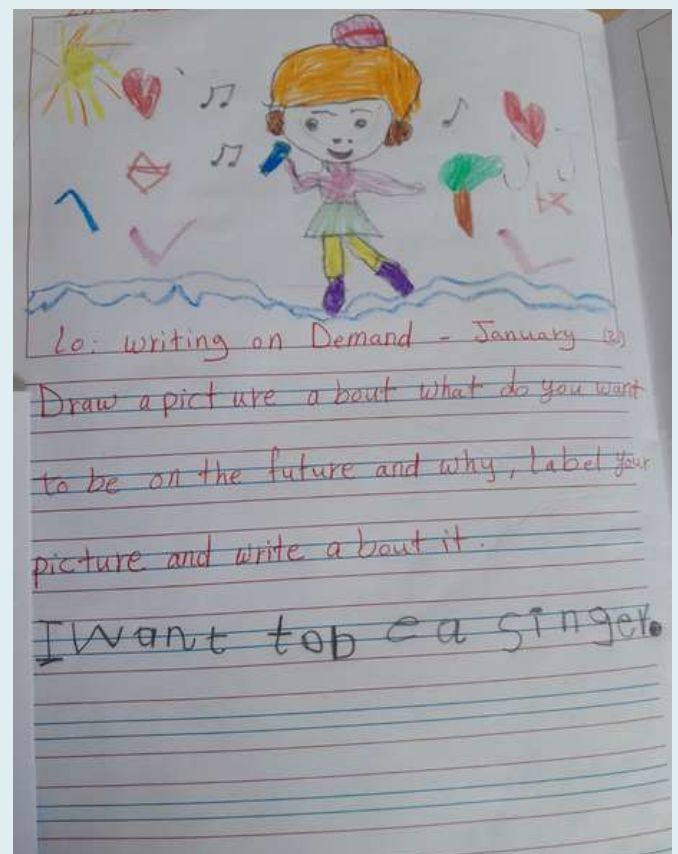 Lo: writing on Demand - January (2)
Draw a pict ure a bout what do you want
to be on the future and why, Label your
picture and write a bout it.
I Want top e a singer.